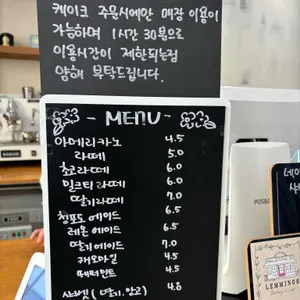 케이크 주문시에만 매장 이용이
가능하며 1시간 30분으로
이용시간이 제한되는점
양해 부탁드립니다.
- MENU -
아메리카노 4.5
라떼 5.0
초코라떼 6.0
밀크티 라떼 6.0
딸기라떼 7.0
청포도 에이드 6.5
레몬 에이드 6.5
딸기에이드 7.0
캐모마일 4.5
페퍼민트 4.5
(딸기, 망고) 4.8
POSBA
LEMMINGS